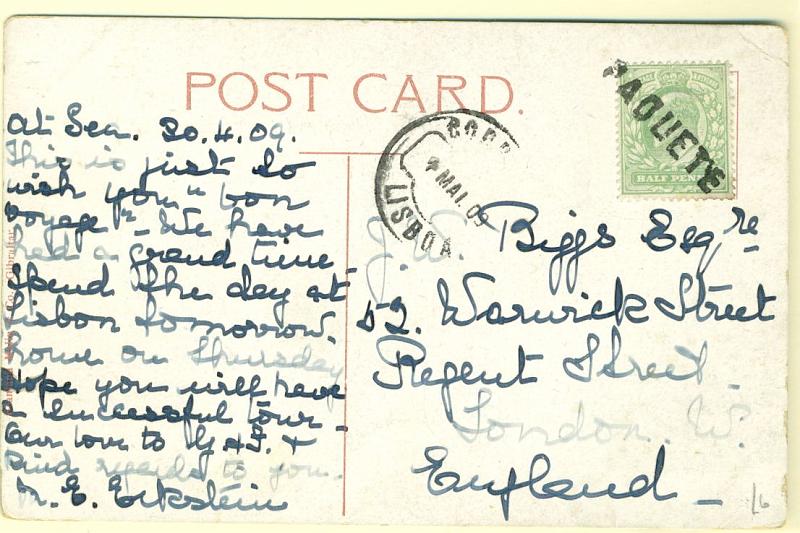 POST CARD.
PAQUETE
HALF PENNY
CORR
4 MAI 09
LISBOA
At Sea. 30.4.09.
This is just to
wish you "bon
voyage" - We have
had a grand time
Spend the day at
Lisbon tomorrow.
home on Thursday
Hope you will have
a successful tour -
Our love to &
Kind regards to you.
M. E. Eckstein
Gibraltar
J. W. Biggs Esqre
52. Warwick Street
Regent Street.
London. W.
England -